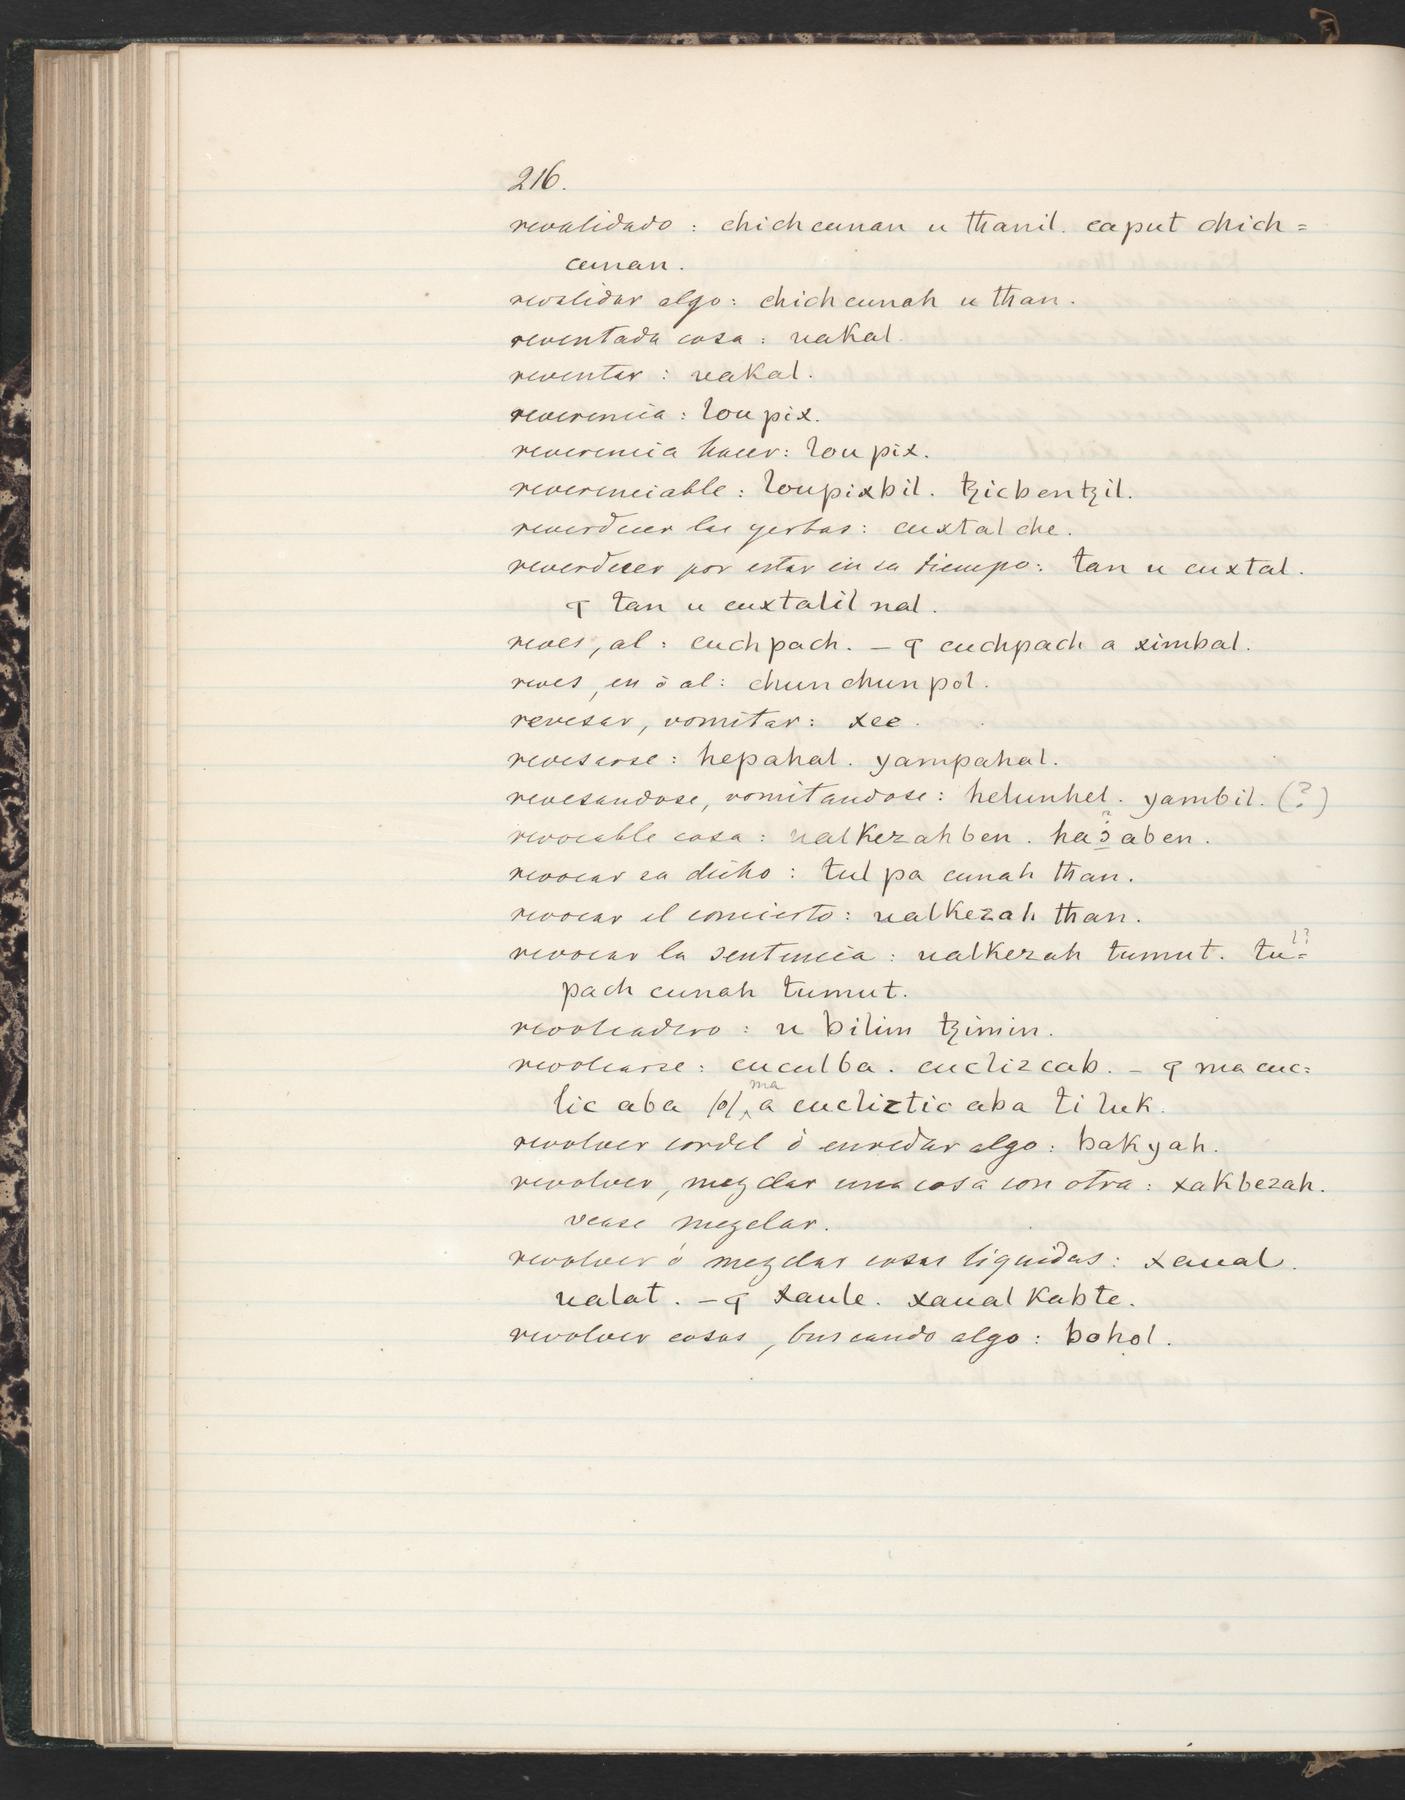 216.
revalidado : chichcunan u thanil. caput chich=
cunan.
revalidar algo : chichcunah u than.
reventada cosa : uakal.
reventar : uakal.
reverencia : lou pix.
reverencia hacer : lou pix.
reverenciable : loupixbil. tzicbentzil.
reverdecer las yerbas : cuxtal che.
reverdecer por estar en su tiempo : tan u cuxtal.
¶ tan u cuxtalil nal.
reves, al : cuchpach. – ¶ cuchpach a ximbal.
reves, en ò al : chunchunpol.
revesar, vomitar : xee.
revesarse : hepahal. yampahal.
revesandose, vomitandose : helunhel. yambil. (?)
revocable cosa : ualkezahben. haɔaben.
?
revocar su dicho : tulpa cunah than.
revocar el concierto : ualkezah than.
revocar la sentencia : ualkezah tumut. tu=
??
pach cunah tumut.
revolcadero : u bilim tzimin.
revolcarse : cuculba. cuclizcab. – ¶ ma cuc=
lic aba /o/ ma a cucliztic aba ti luk.
revolver cordel ò enredar algo : bakyah.
revolver, mezclar una cosa con otra : xakbezah.
vease mezclar.
revolver ó mezclar cosas liquidas : xaual.
ualat. – ¶ xaule. xaual kabte.
revolver cosas, buscando algo : bohol.